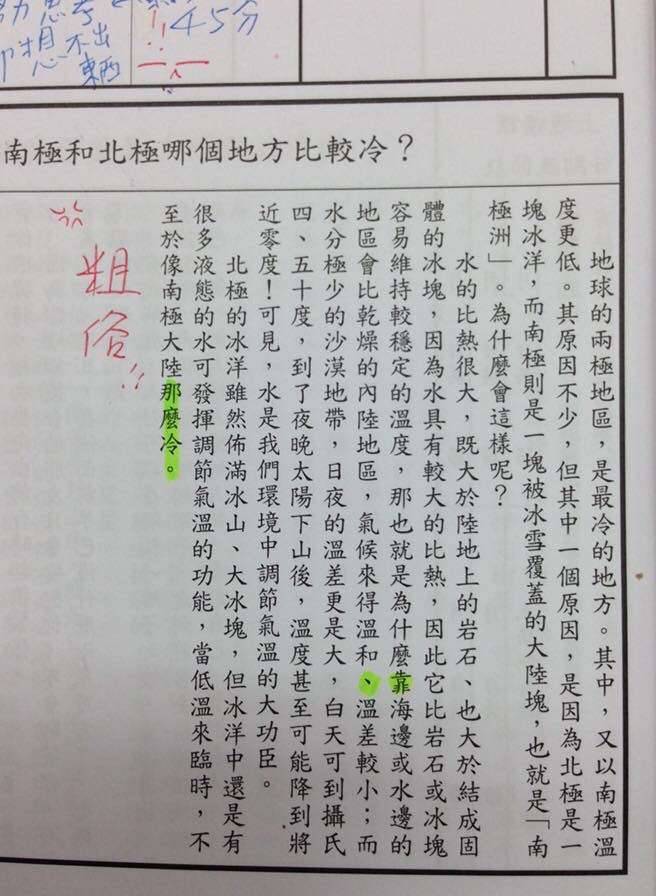 力思考
想不出
東西
!!
45分
南極和北極哪個地方比較冷？
地球的兩極地區，是最冷的地方。其中，又以南極溫
度更低。其原因不少，但其中一個原因，是因為北極是一
塊冰洋，而南極則是一塊被冰雪覆蓋的大陸塊，也就是「南
極洲」。為什麼會這樣呢？
水的比熱很大，既大於陸地上的岩石、也大於結成固
體的冰塊，因為水具有較大的比熱，因此它比岩石或冰塊
容易維持較穩定的溫度，那也就是為什麼靠海邊或水邊的
地區會比乾燥的內陸地區，氣候來得溫和、溫差較小；而
水分極少的沙漠地帶，日夜的溫差更是大，白天可到攝氏
四、五十度，到了夜晚太陽下山後，溫度甚至可能降到將
近零度！可見，水是我們環境中調節氣溫的大功臣。
北極的冰洋雖然佈滿冰山、大冰塊，但冰洋中還是有
很多液態的水可發揮調節氣溫的功能，當低溫來臨時，不
至於像南極大陸那麼冷。
粗俗!!